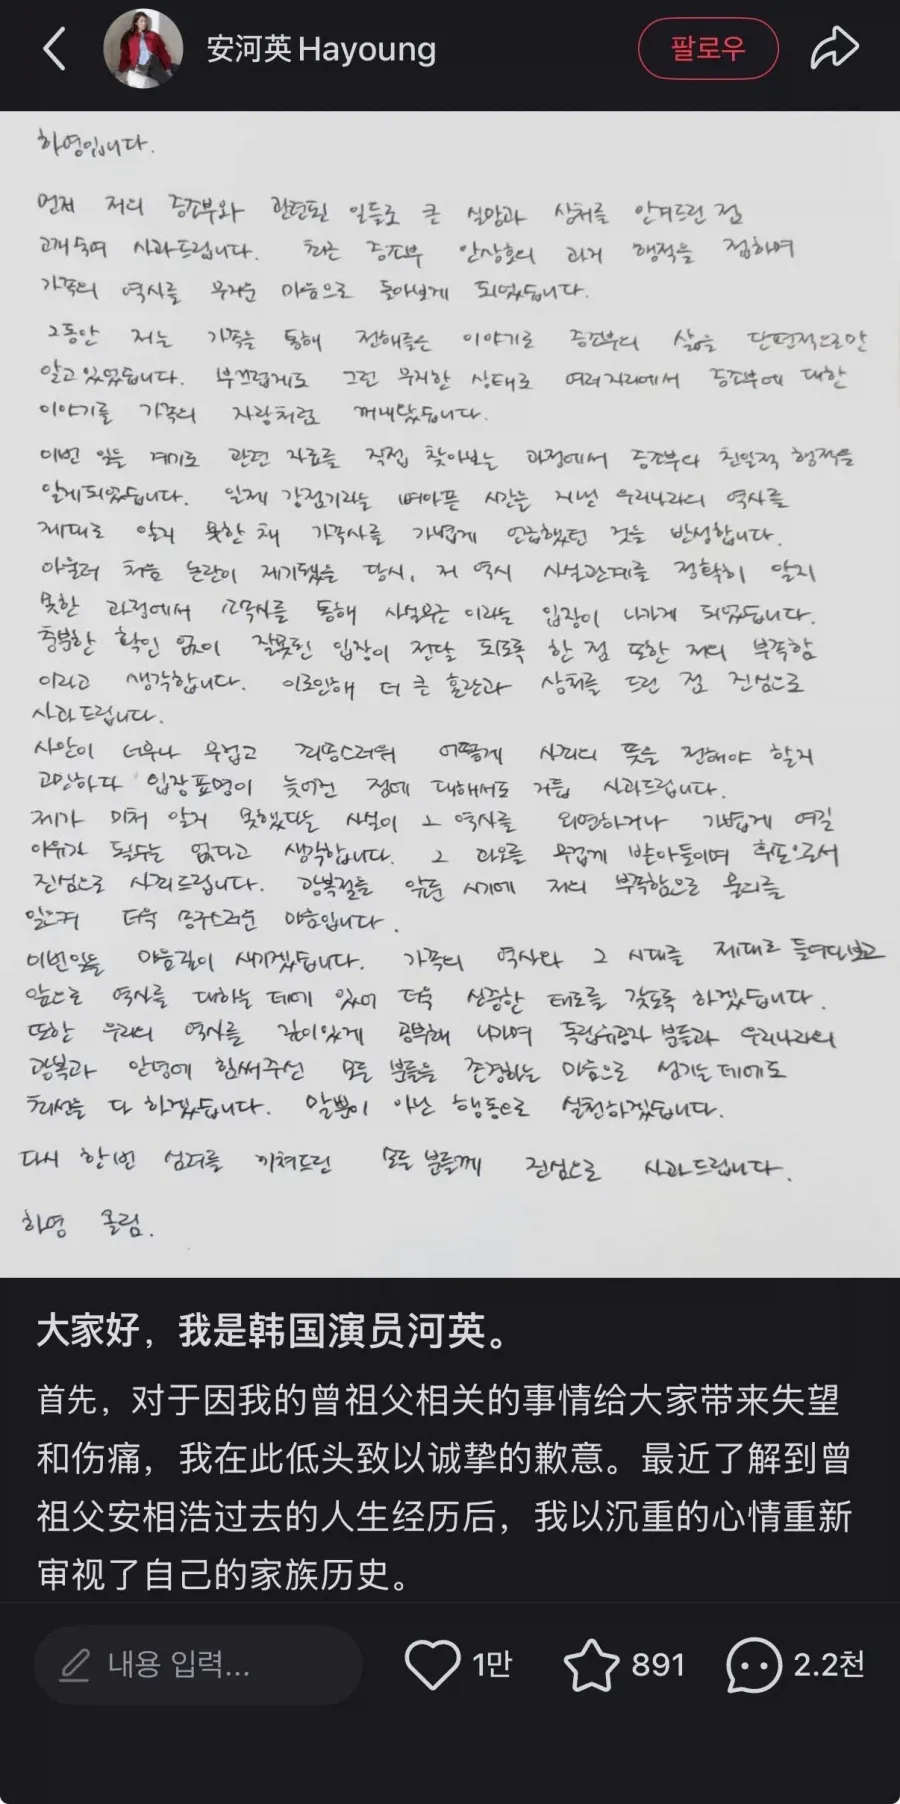 安河英Hayoung
팔로우
하영입니다.
먼저 저의 증조부와 관련된 일들로 큰 실망과 상처를 안겨드린 점
고개숙여 사과드립니다. 최근 증조부 안상호의 과거 행적을 접하며
가족의 역사를 무거운 마음으로 돌아보게 되었습니다.
그동안 저는 가족을 통해 전해들은 이야기로 증조부의 삶을 단편적으로만
알고 있었습니다. 부끄럽게도 그런 무지한 상태로 여러 자리에서 증조부에 대한
이야기를 가족의 자랑처럼 꺼내왔습니다.
이번 일을 계기로 관련 자료를 직접 찾아보는 과정에서 증조부의 친일적 행적을
알게되었습니다. 일제 강점기라는 뼈아픈 시간을 지낸 우리나라의 역사를
제대로 알지 못한 채 가족사를 가볍게 언급했던 것을 반성합니다.
아울러 처음 논란이 제기됐을 당시, 저 역시 사실관계를 정확히 알지
못한 과정에서 소속사를 통해 사실무근이라는 입장이 나가게 되었습니다.
충분한 확인 없이 잘못된 입장이 전달 되도록 한 점 또한 저의 부족함
이라고 생각합니다. 이로인해 더 큰 혼란과 상처를 드린 점 진심으로
사과드립니다.
사안이 너무나 무겁고 죄송스러워 어떻게 사죄의 뜻을 전해야 할지
고민하다 입장표명이 늦어진 점에 대해서도 거듭 사과드립니다.
제가 미처 알지 못했다는 사실이 그 역사를 외면하거나 가볍게 여길
이유가 될수는 없다고 생각합니다. 그 과오를 무겁게 받아들이며 후손으로서
진심으로 사죄드립니다. 광복절을 앞둔 시기에 저의 부족함으로 물의를
일으켜 더욱 송구스러운 마음입니다.
이번일을 마음깊이 새기겠습니다. 가족의 역사와 그 시대를 제대로 들여다보고
앞으로 역사를 대하는 데에 있어 더욱 신중한 태도를 갖도록 하겠습니다.
또한 우리의 역사를 깊이있게 공부해 나가며 독립유공자 분들과 우리나라의
광복과 안녕에 힘써주신 모든 분들을 존경하는 마음으로 섬기는 데에도
최선을 다 하겠습니다. 말뿐이 아닌 행동으로 실천하겠습니다.
다시 한번 심려를 끼쳐드린 모든 분들께 진심으로 사과드립니다.
하영 올림.
大家好，我是韩国演员河英。
首先，对于因我的曾祖父相关的事情给大家带来失望
和伤痛，我在此低头致以诚挚的歉意。最近了解到曾
祖父安相浩过去的人生经历后，我以沉重的心情重新
审视了自己的家族历史。
내용 입력...
1만
891
2.2천